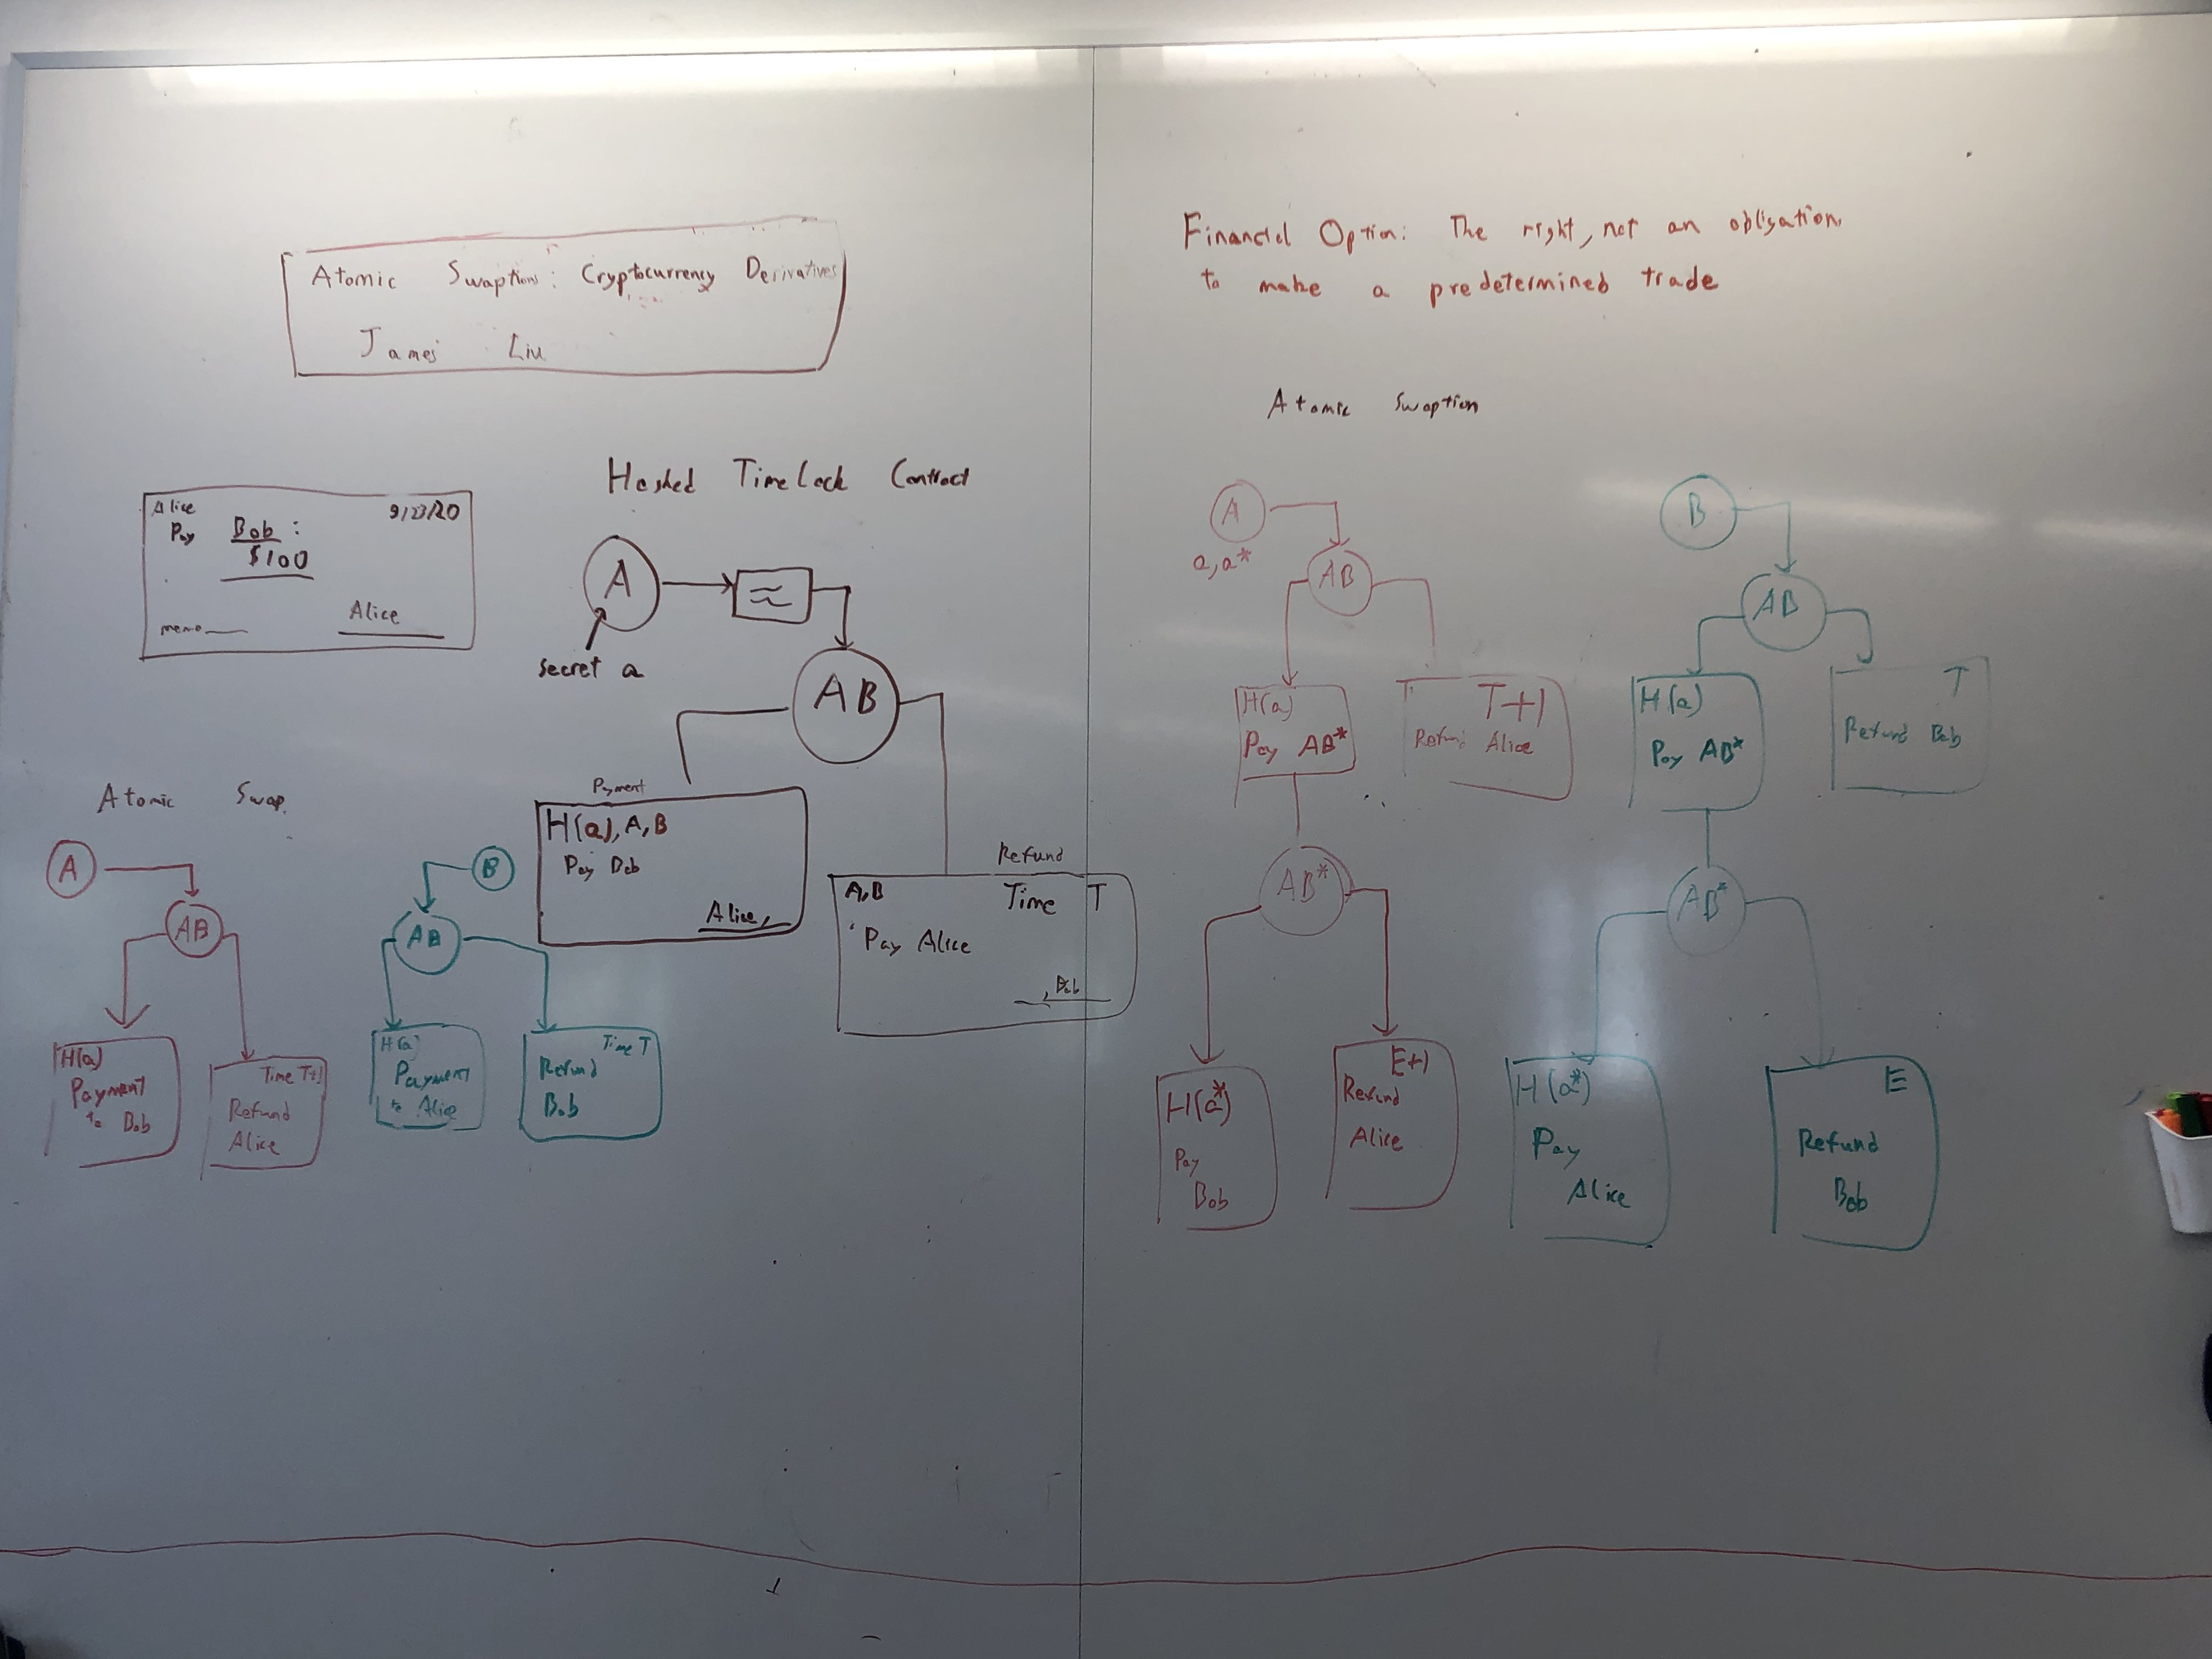 Atomic Swaptions: Cryptocurrency Derivatives
James Liu
Alice 9/23/20
Pay Bob:
$100
Alice
memo
Hashed TimeLock Contract
A
≈
secret a
AB
Payment
H(a), A, B
Pay Bob
Alice,
Refund
A,B Time T
Pay Alice
, Bob
Atomic Swap
A
AB
H(a)
Payment
to Bob
Time T+1
Refund
Alice
B
AB
H(a)
Payment
to Alice
Time T
Refund
Bob
Financial Option: The right, not an obligation,
to make a predetermined trade
Atomic Swaption
A
a, a*
AB
H(a)
Pay AB*
T+1
Refund Alice
AB*
H(a*)
Pay
Bob
E+1
Refund
Alice
B
AB
H(a)
Pay AB*
T
Refund Bob
AB*
H(a*)
Pay
Alice
E
Refund
Bob